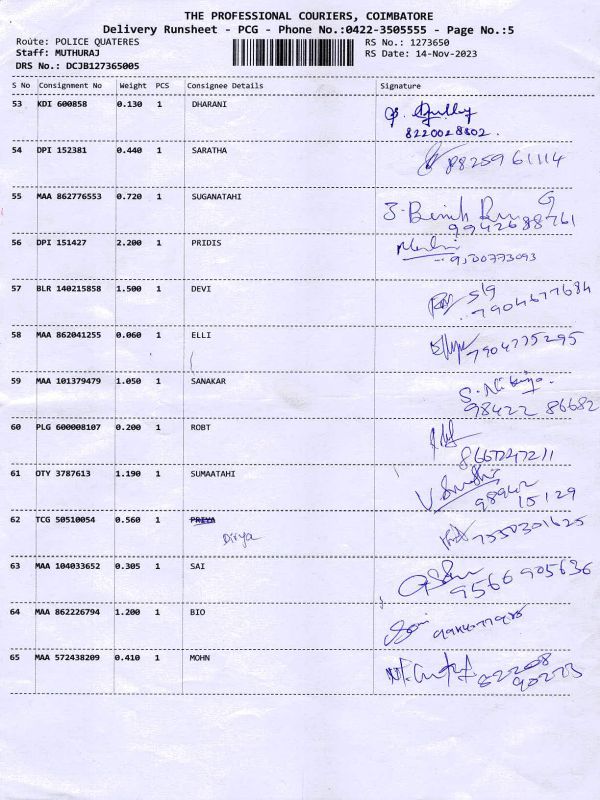 THE PROFESSIONAL COURIERS, COIMBATORE
Delivery Runsheet - PCG - Phone No.:0422-3505555 - Page No.:5
Route: POLICE QUATERES
RS No.: 1273650
Staff: MUTHURAJ
RS Date: 14-Nov-2023
DRS No.: DCJB127365005
S No Consignment No Weight PCS Consignee Details Signature
53 KDI 600858 0.130 1 DHARANI
8220028802.
54 DPI 152381 0.440 1 SARATHA
9825961114
55 MAA 862776553 0.720 1 SUGANATAHI
9942688761
56 DPI 151427 2.200 1 PRIDIS
57 BLR 140215858 1.500 1 DEVI
7904677684
58 MAA 862041255 0.060 1 ELLI
7904775295
59 MAA 101379479 1.050 1 SANAKAR
98422 86682
60 PLG 600008107 0.200 1 ROBT
8667247211
61 OTY 3787613 1.190 1 SUMAATAHI
98942
15129
62 TCG 50510054 0.560 1 PRIYA
Divya
7550301625
63 MAA 104033652 0.305 1 SAI
9566905636
64 MAA 862226794 1.200 1 BIO
65 MAA 572438209 0.410 1 MOHN
82208
90273